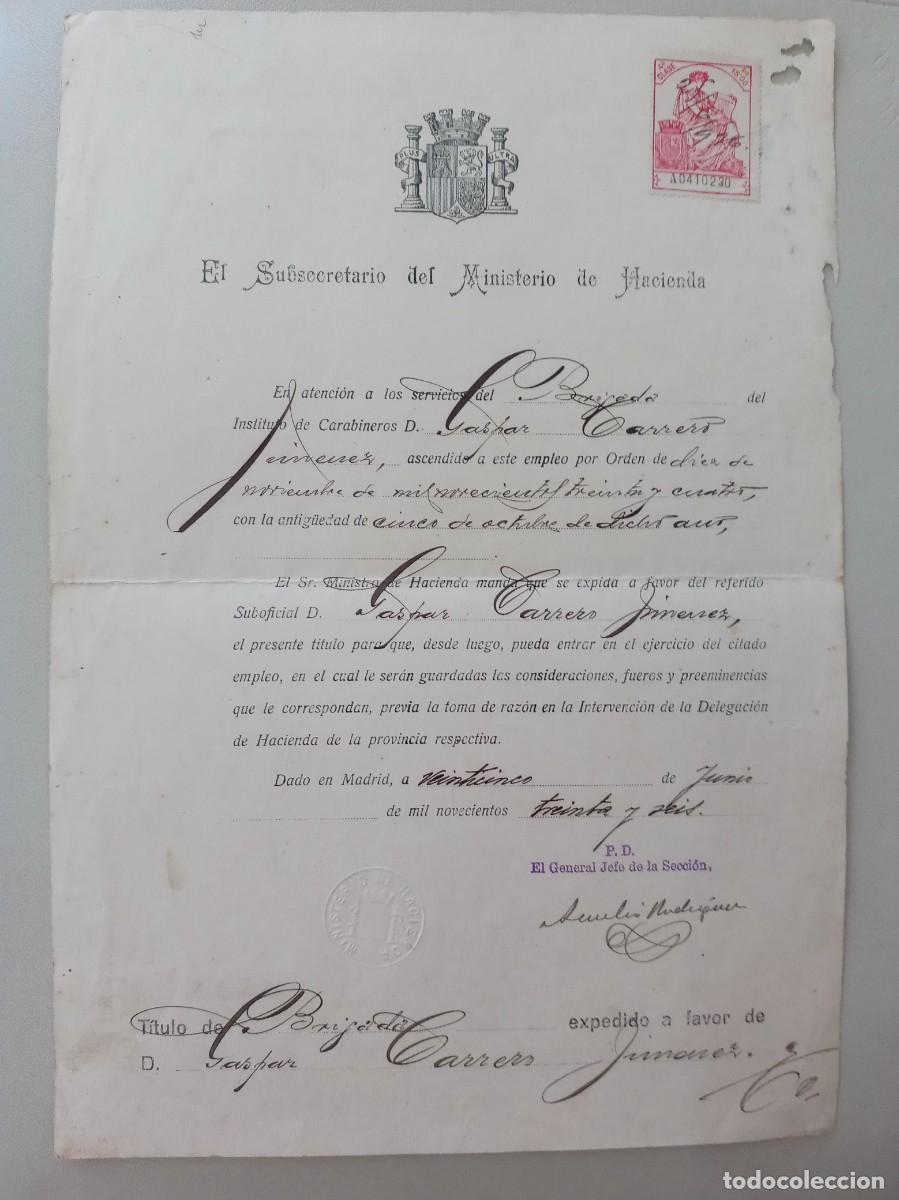 4ª CLASE 15'00
A0410230
PLUS ULTRA
El Subsecretario del Ministerio de Hacienda
En atención a los servicios del Brigada del
Instituto de Carabineros D. Gaspar Carrero
Jimenez, ascendido a este empleo por Orden de diez de
noviembre de mil novecientos treinta y cuatro,
con la antigüedad de cinco de octubre de dicho año,
El Sr. Ministro de Hacienda manda que se expida a favor del referido
Suboficial D. Gaspar Carrero Jimenez,
el presente título para que, desde luego, pueda entrar en el ejercicio del citado
empleo, en el cual le serán guardadas las consideraciones, fueros y preeminencias
que le correspondan, previa la toma de razón en la Intervención de la Delegación
de Hacienda de la provincia respectiva.
Dado en Madrid, a veinticinco de Junio
de mil novecientos treinta y seis.
P. D.
El General Jefe de la Sección,
Aurelio Rodríguez
MINISTERIO DE HACIENDA
Título de Brigada expedido a favor de
D. Gaspar Carrero Jimenez.
todocoleccion.net